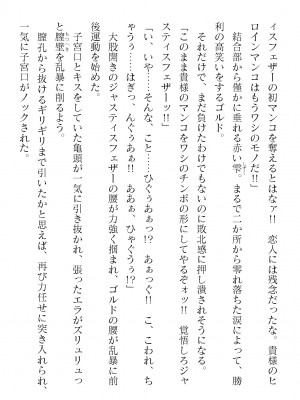 ィスフェザーの初マンコを奪えるとはなァ!! 恋人には残念だったな。貴様のヒ
ロインマンコはもうワシのモノだ!!」
結合部から僅かに垂れる赤い雫。まるで二か所から零れ落ちた涙によって、勝
利の高笑いをするゴルド。
それだけで、まだ負けたわけでもないのに敗北感に押し潰されそうになる。
「このまま貴様のマンコをワシのチンポの形にしてやるぞォッ!! 覚悟しろジャ
スティスフェザーッ!!」
「い、いや…そんな、こと……ひぐぅあぁっ!? あぁっぐ!! こ、こわれ、ち
ゃうぅ……はぎっ、んぐぅあぁ!! あぁぁ、ひゃぐうぅ!?」
大股開きのジャスティスフェザーの腰が力強く掴まれ、ゴルドの腰が乱暴に前
後運動を始めた。
子宮口とキスをしていた亀頭が一気に引き抜かれ、張ったエラがズリュリュっ
と膣壁を乱暴に削るよう。
膣孔から抜けるギリギリまで引いたかと思えば、再び力任せに突き入れられ、
一気に子宮口がノックされた。